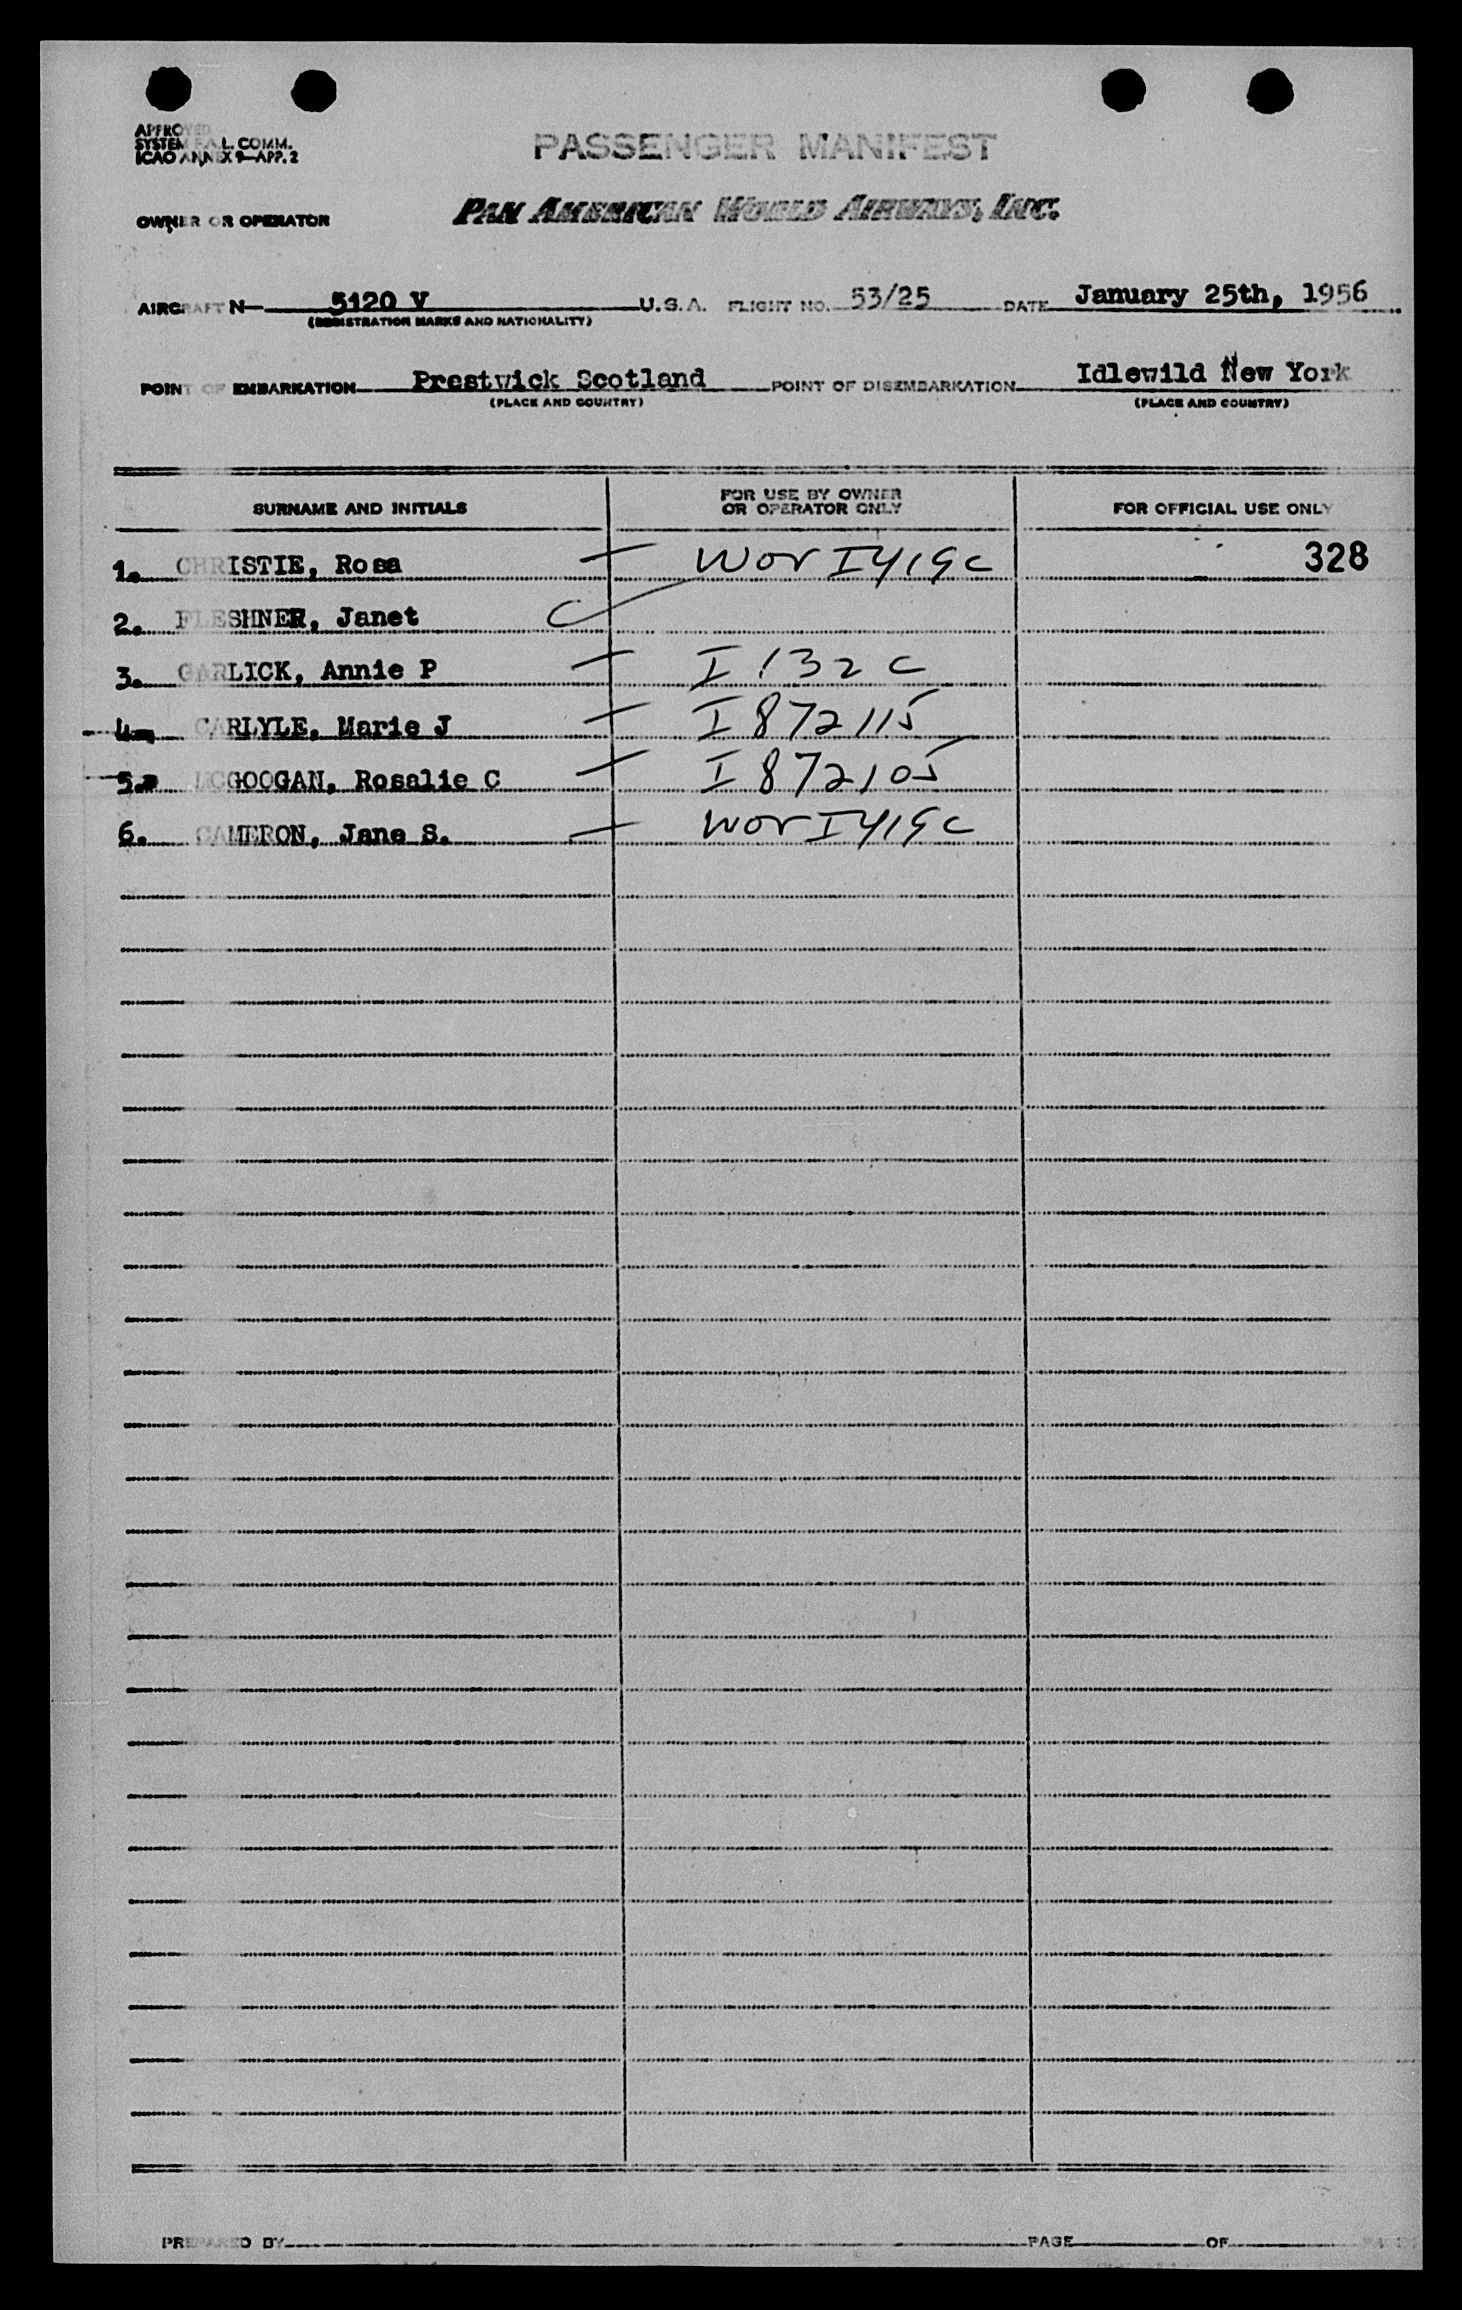 APPROVED
SYSTEM F.A.L. COMM.
ICAO ANNEX 9—APP. 2
PASSENGER MANIFEST
OWNER OR OPERATOR PAN AMERICAN WORLD AIRWAYS, INC.
AIRCRAFT N— 5120 V U.S.A. FLIGHT NO. 53/25 DATE January 25th, 1956
(REGISTRATION MARKS AND NATIONALITY)
POINT OF EMBARKATION Prestwick Scotland POINT OF DISEMBARKATION Idlewild New York
(PLACE AND COUNTRY) (PLACE AND COUNTRY)
SURNAME AND INITIALS FOR USE BY OWNER OR OPERATOR ONLY FOR OFFICIAL USE ONLY
1. CHRISTIE, Rosa — WOV I419C 328
2. FLESHNER, Janet
3. GARLICK, Annie P — I 132 C
4. CARLYLE, Marie J — I 872115
5. MCGOOGAN, Rosalie C — I 872105
6. CAMERON, Jane S. — WOV I419C
PREPARED BY PAGE OF